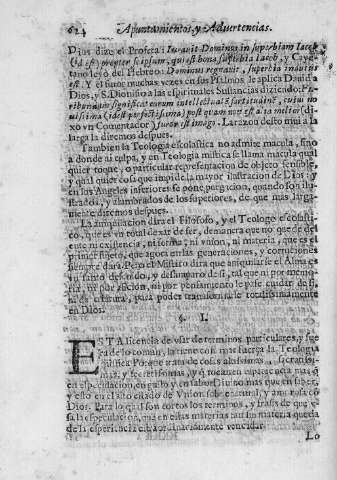 624 Apuntamientos, y Advertencias.
Dios dize el Profeta: Iurauit Dominus in superbiam Iacob
(id est) propter se ipsum, qui est bona superbia Iacob, y Caye-
tano leyò del Hebreo: Dominus regnauit, superbia indutus
est. Y el furor muchas vezes en sus Psalmos le aplica Dauid a
Dios, y S. Dionisio a las espirituales Sustancias diziendo: Fu-
ribundum significat eorum intellectualē fortitudinē, cuius no-
uissima (id est perfectissima) post quam nō est alia melior (di-
xo vn Comentador) furor est imago. La razon desto mui a la
larga la diremos despues.
Tambien la Teologia escolastica no admite macula, sino
a donde ai culpa, y en Teologia mistica se llama macula qual
quier toque, o particular representacion de objeto sensible,
y qual quier cosa que impide la mayor ilustracion de Dios: y
en los Angeles inferiores se pone purgacion, quando son ilu-
strados, y alumbrados de los superiores, de que mas larga-
mente diremos despues.
La aniquilacion dira el Filosofo, y el Teologo escolasti-
co, que es vn total dexar de ser, de manera que no quede del
ente ni existencia, ni forma, ni vnion, ni materia, que es el
primer sujeto, que agora en las generaciones, y corrupciones
siempre dura. Pero el Mistico dira que aniquilarse el Alma es
vn santo descuido, y desamparo de si, tal que ni por memo-
ria, ni por aficion, ni por pensamiento le pase cuidar de si,
ni de criatura, para poder transformarse totalissimamente
en Dios.
§. I.
ESTA licencia de vsar de terminos particulares, y fue
ra de lo comun, la tiene con mas fuerça la Teologia
mistica Porque trata de cosas altissimas, sacratissi-
mas, y secretissimas, y q̄ tocan en esperiencia mas q̄
en especulacion, en gusto y en sabor Diuino mas que en saber,
y esto en el alto estado de Vnion sobrenatural, y amorosa cō
Dios. Para lo qual son cortos los terminos, y frasis de que v-
sa la especulacion, que en estas materias tan sin materia queda
de la esperiencia extraordinariamente vencida.
Lo